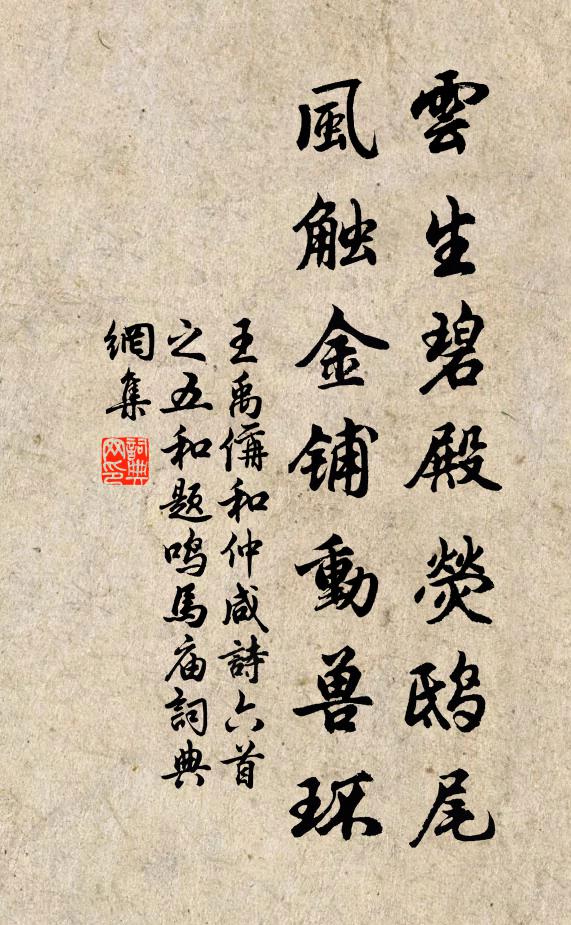 雲生碧殿熒鸱尾
風触金铺動兽环
王禹偁和仲咸詩六首
之五和题鸣馬庙詞典
網集
詞典網印